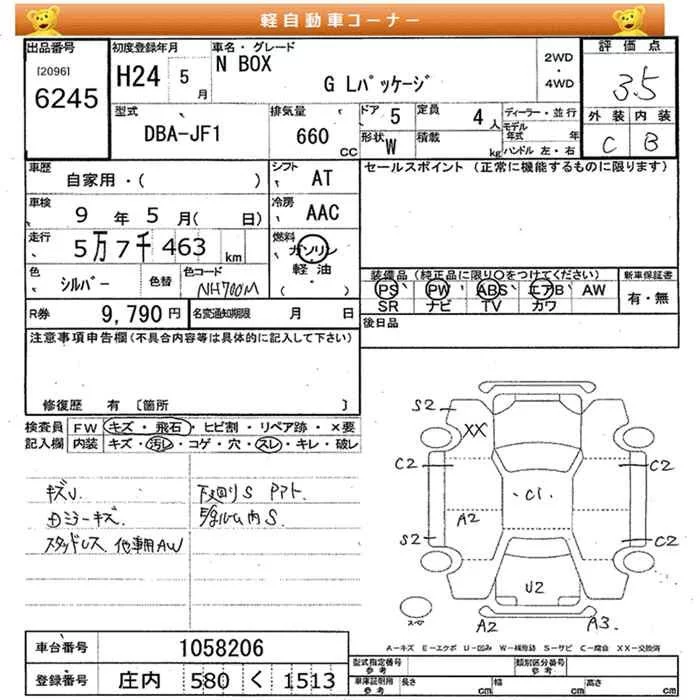 軽自動車コーナー
出品番号
[2096]
6245
初度登録年月
H24 5
月
車名・グレード
N BOX
G Lパッケージ
2WD
・
4WD
評価点
3.5
外装 内装
C B
型式
DBA-JF1
排気量
660
CC
ドア 5
定員 4 人
形状 W
積載 kg
ディーラー・並行
モデル年式 年
ハンドル 左・右
車歴
自家用・( )
シフト
AT
セールスポイント (正常に機能するものに限ります)
車検
9 年 5 月( 日)
冷房
AAC
走行
5万7千463 km
燃料
ガソリン
軽油
( )
色
シルバー
色替
色コード
NH700M
装備品 (純正品に限り○をつけてください)
PS PW ABS エアB AW
SR ナビ TV カワ
新車保証書
有・無
R券 9,790円
名変通知期限 月 日
後日品
注意事項申告欄(不具合内容等は具体的に記入して下さい)
修復歴 有 〔箇所 〕
検査員
記入欄
FW キズ・飛石・ヒビ割・リペア跡・×要
内装 キズ・汚レ・コゲ・穴・スレ・キレ・破レ
キズU.
Dミラーキズ.
スタッドレス 他車用AW
下廻りS
S2
XX
C2
C2
C1
A2
S2
C2
U2
A2
A3.
スペア
A-キズ E-エクボ U-凹み W-補修跡 S-サビ C-腐食 XX-交換済
車台番号 1058206
登録番号 庄内 580 く 1513
型式指定番号
参考
類別区分番号
参考
車庫証明用
参考
長さ cm 幅 cm 高さ cm